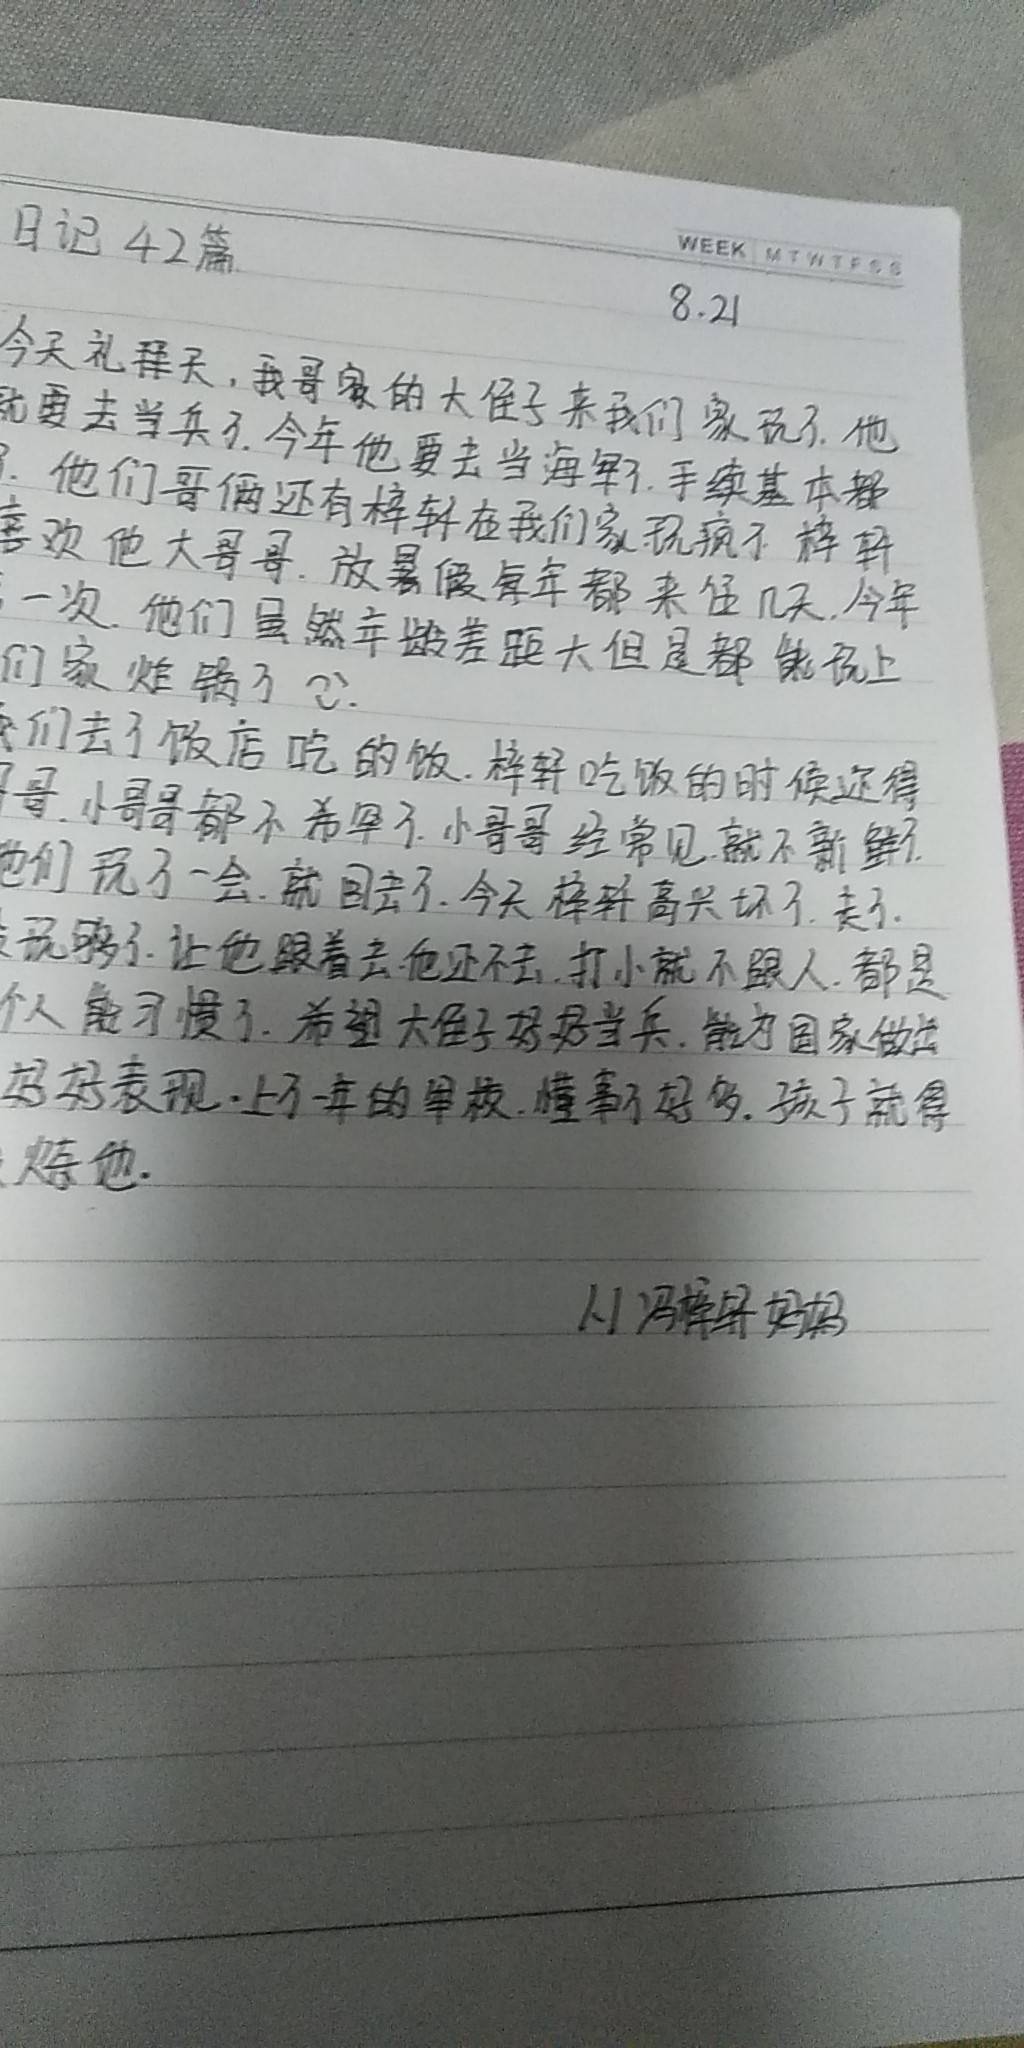 日记 42篇
WEEK M T W T F S S
8.21
今天礼拜天,我哥家的大侄子来我们家玩了.他
就要去当兵了.今年他要去当海军了.手续基本都
了.他们哥俩还有梓轩在我们家玩疯了.梓轩
喜欢他大哥哥.放暑假每年都来住几天.今年
一次.他们虽然年龄差距大但是都能玩上
们家炸锅了
我们去了饭店吃的饭.梓轩吃饭的时候还得
哥哥.小哥哥都不希罕了.小哥哥经常见.就不新鲜了.
他们玩了一会.就回去了.今天梓轩高兴坏了.走了.
没玩够了.让他跟着去.他还不去.打小就不跟人.都是
个人能习惯了.希望大侄子好好当兵.能为国家做出
好好表现.上了一年的军校.懂事了好多.孩子就得
他.
冯梓轩妈妈